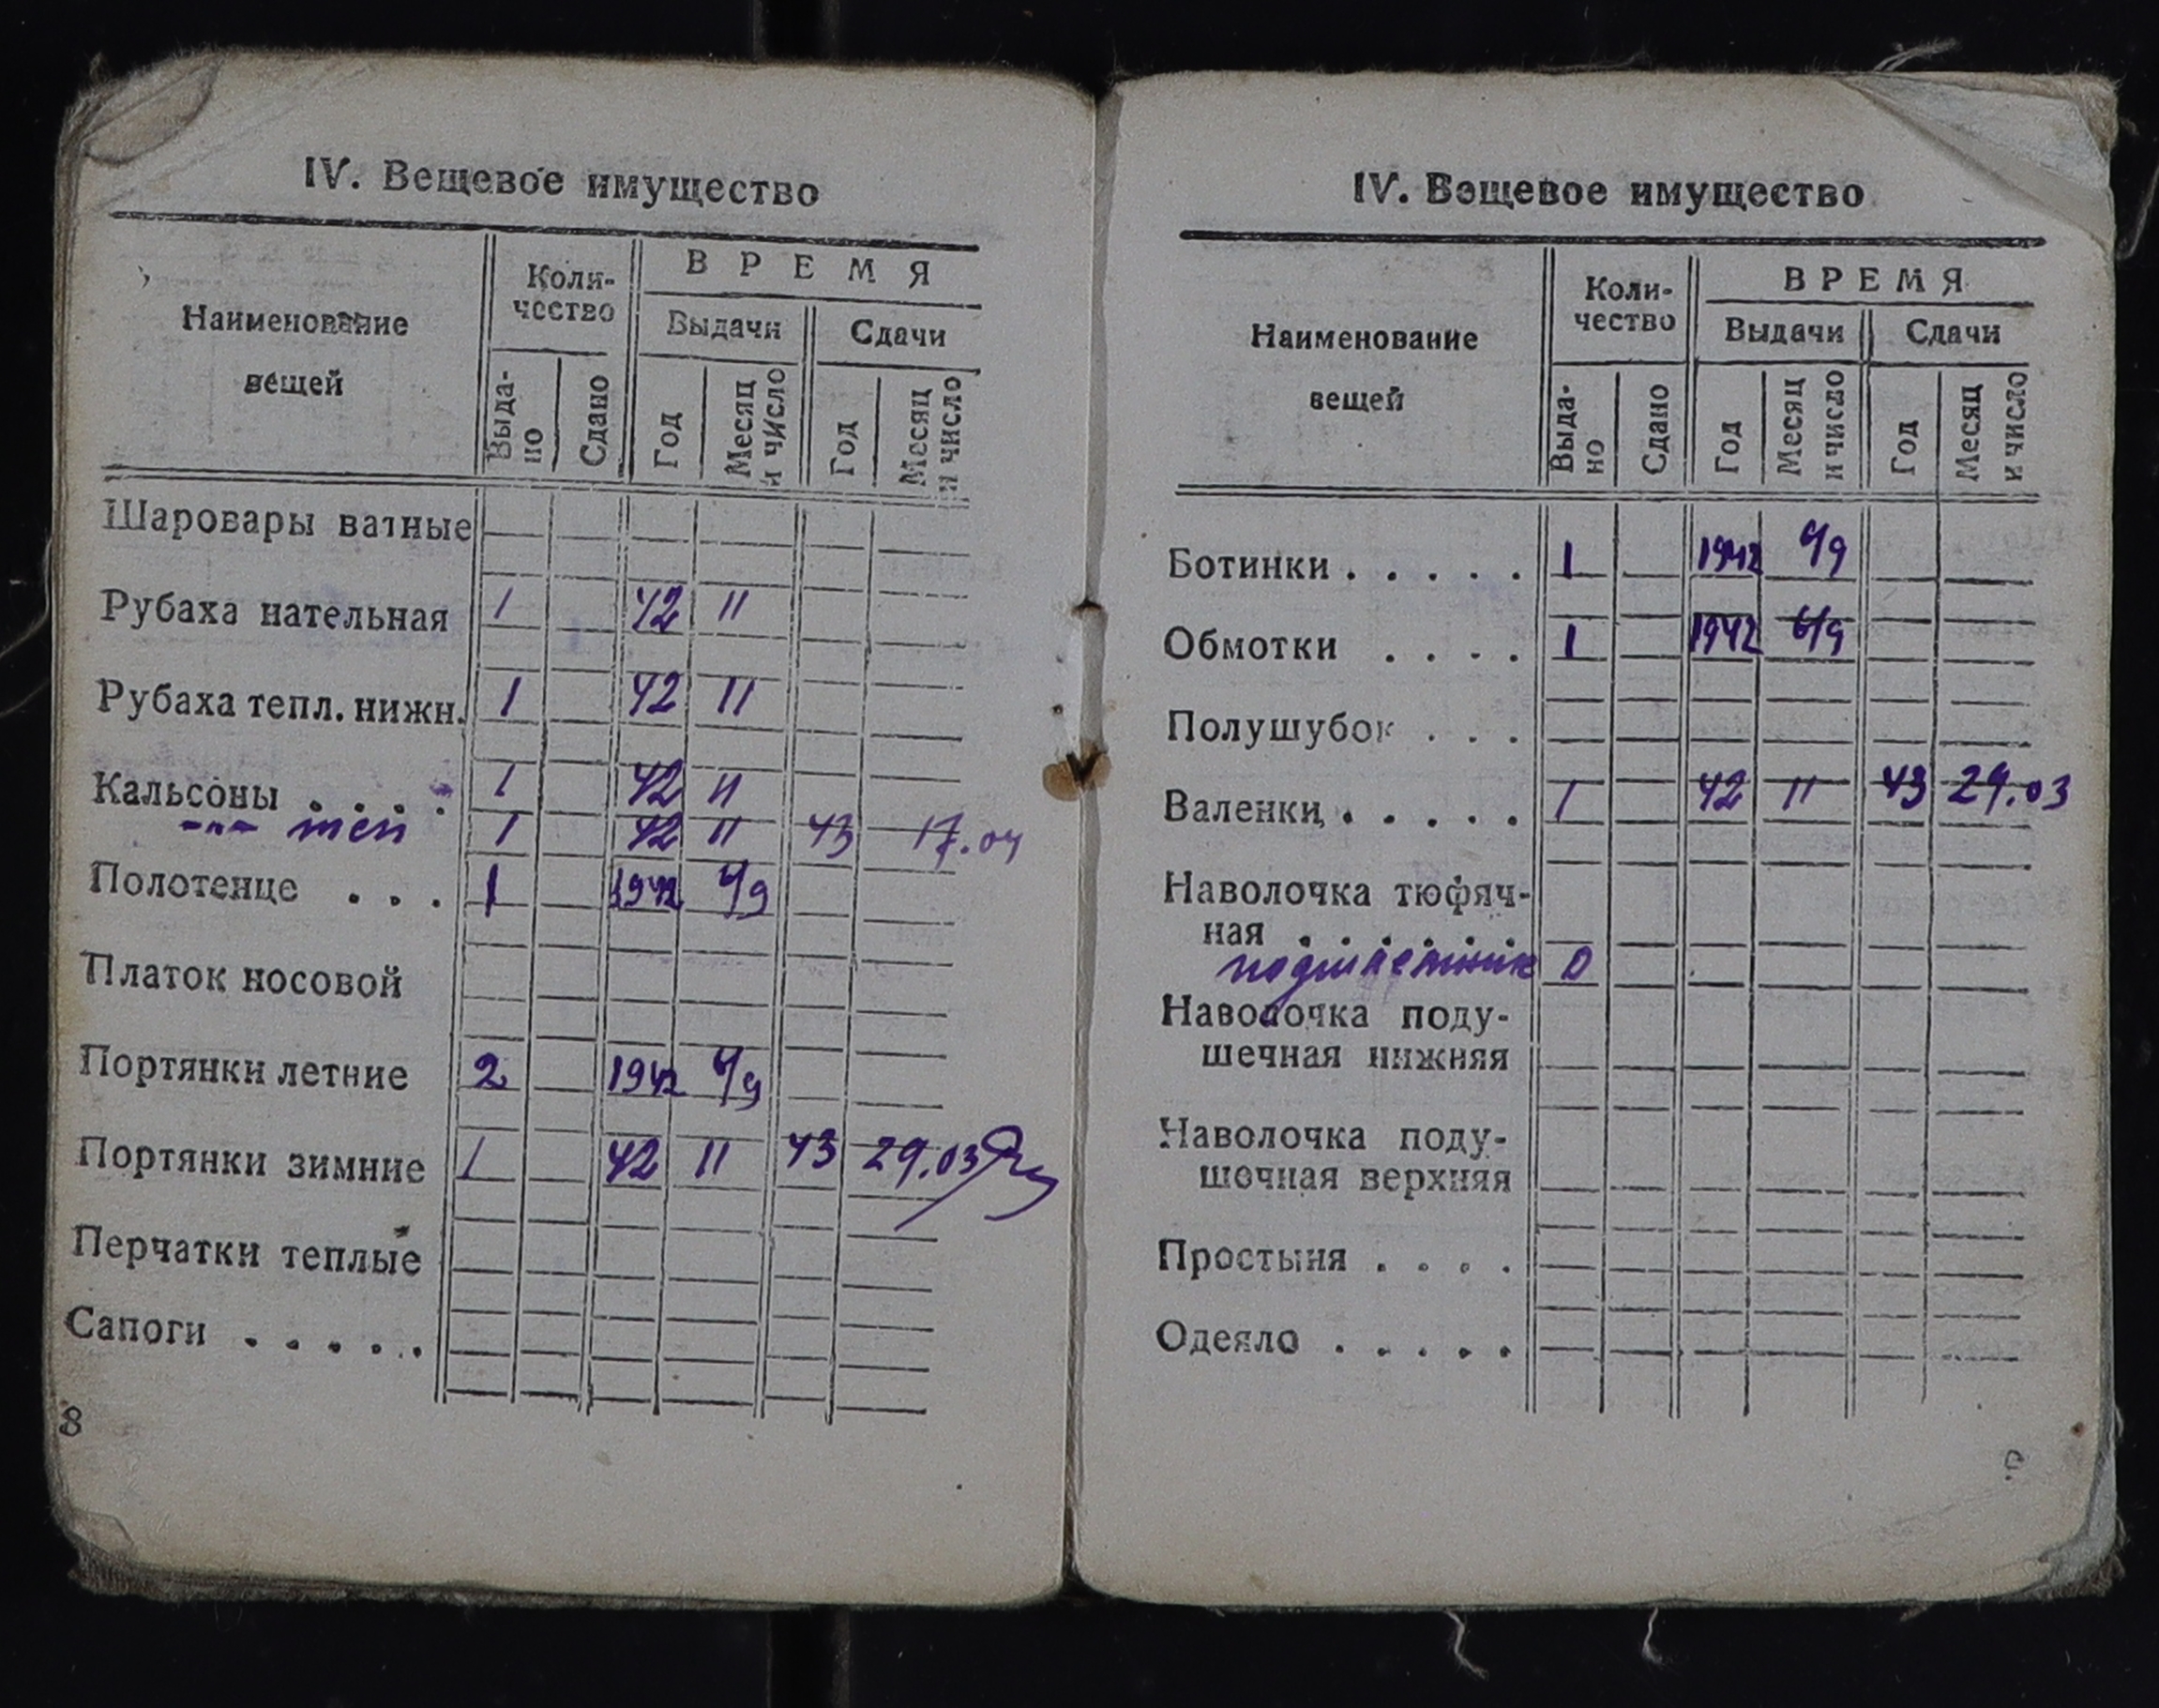 IV. Вещевое имущество
Наименование вещей
Коли-
чество
ВРЕМЯ
Выдачи
Сдачи
Выда-
но
Сдано
Год
Месяц
и число
Год
Месяц
и число
Шаровары ватные
Рубаха нательная 1 42 11
Рубаха тепл. нижн. 1 42 11
Кальсоны . . . . 1 42 11
-"- теп 1 42 11 43 17.04
Полотенце . . . 1 1942 4/9
Платок носовой
Портянки летние 2 1942 4/9
Портянки зимние 1 42 11 43 29.03
Перчатки теплые
Сапоги . . . . .
8
IV. Вещевое имущество
Наименование вещей
Коли-
чество
ВРЕМЯ
Выдачи
Сдачи
Выда-
но
Сдано
Год
Месяц
и число
Год
Месяц
и число
Ботинки . . . . . 1 1942 4/9
Обмотки . . . . 1 1942 4/9
Полушубок . . .
Валенки . . . . . 1 42 11 43 29.03
Наволочка тюфяч-
ная . . . . . .
подшлемник 0
Наволочка поду-
шечная нижняя
Наволочка поду-
шечная верхняя
Простыня . . . .
Одеяло . . . . .